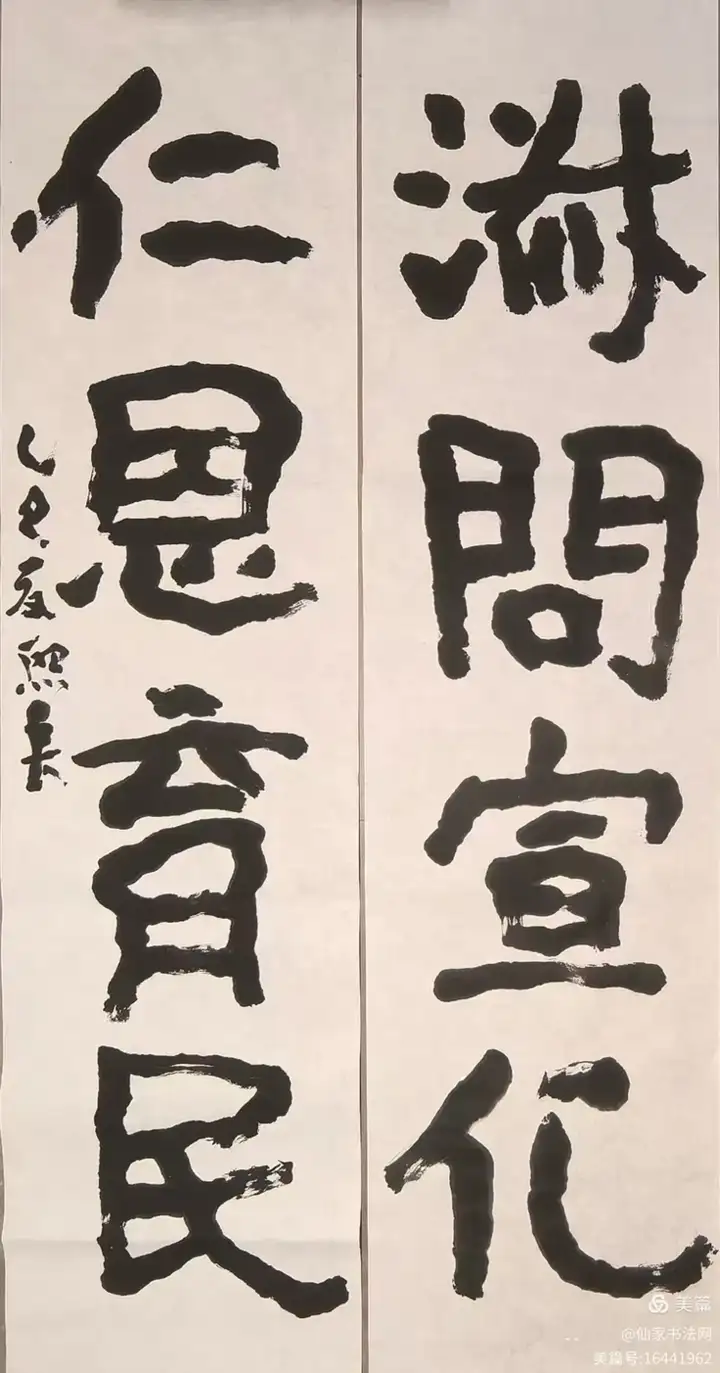 淑問宣化
仁恩育民
乙夏熙長
美篇
@仙家书法网
美篇号:16441962